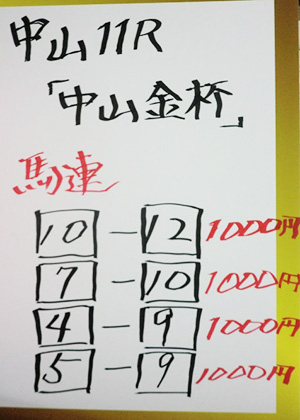 中山11R
「中山金杯」
馬連
10-12 1000円
7-10 1000円
4-9 1000円
5-9 1000円